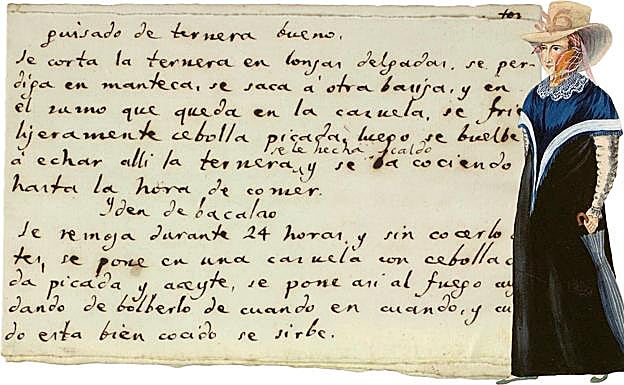 guisado de ternera bueno.
se corta la ternera en lonjas delgadas, se per-
diga en manteca, se saca á otra basija, y en
el zumo que queda en la cazuela, se frie
lijeramente cebolla picada, luego se buelbe
se le hecha caldo
á echar alli la ternera, y se va cociendo
hasta la hora de comer.
Yden de bacalao
Se remoja durante 24 horas, y sin cocerlo
tes, se pone en una cazuela con cebolla
da picada y aceyte, se pone asi al fuego
dando de bolberlo de cuando en cuando, y
do esta bien cocido se sirbe.